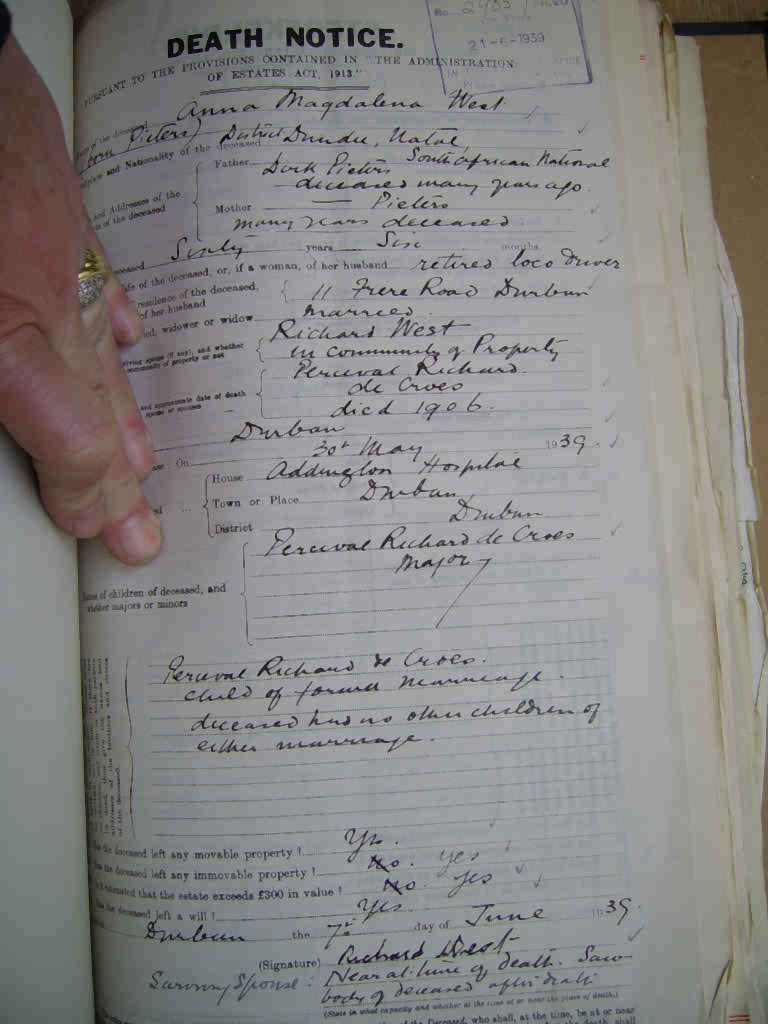 DEATH NOTICE.
No. 2955 FILED
21-6-1939
PURSUANT TO THE PROVISIONS CONTAINED IN "THE ADMINISTRATION
OF ESTATES ACT, 1913."
Anna Magdalena West
of the deceased
(born Pieters) District Dundee, Natal,
place and Nationality of the deceased
South African National
Father Dork Pieters
deceased many years ago.
and Addresses of the
of the deceased
Mother — Pieters
many years deceased
deceased Sixty years Six months
of the deceased, or, if a woman, of her husband retired loco driver
residence of the deceased, 11 Frere Road Durban
of her husband
married
widower or widow
Richard West
surviving spouse (if any), and whether
community of property or not
in community of Property
Percival Richard
de Croes
and approximate date of death
spouse or spouses
died 1906.
Durban
On 30th May 1939.
House Addington Hospital
Town or Place Durban
District Durban
Percival Richard de Croes
Major
Names of children of deceased, and
whether majors or minors
Percival Richard de Croes.
child of former marriage.
deceased had no other children of
either marriage.
of the deceased.
the deceased left any movable property? Yes.
the deceased left any immovable property? No. yes
estimated that the estate exceeds £300 in value? No. yes
the deceased left a will? Yes
Durban the 7th day of June 1939.
(Signature) Richard West
Surviving Spouse: Near at time of death. Saw
body of deceased after death
(State in what capacity and whether at the time at or near the place of death.)
of the Deceased, who shall, at the time, be at or near